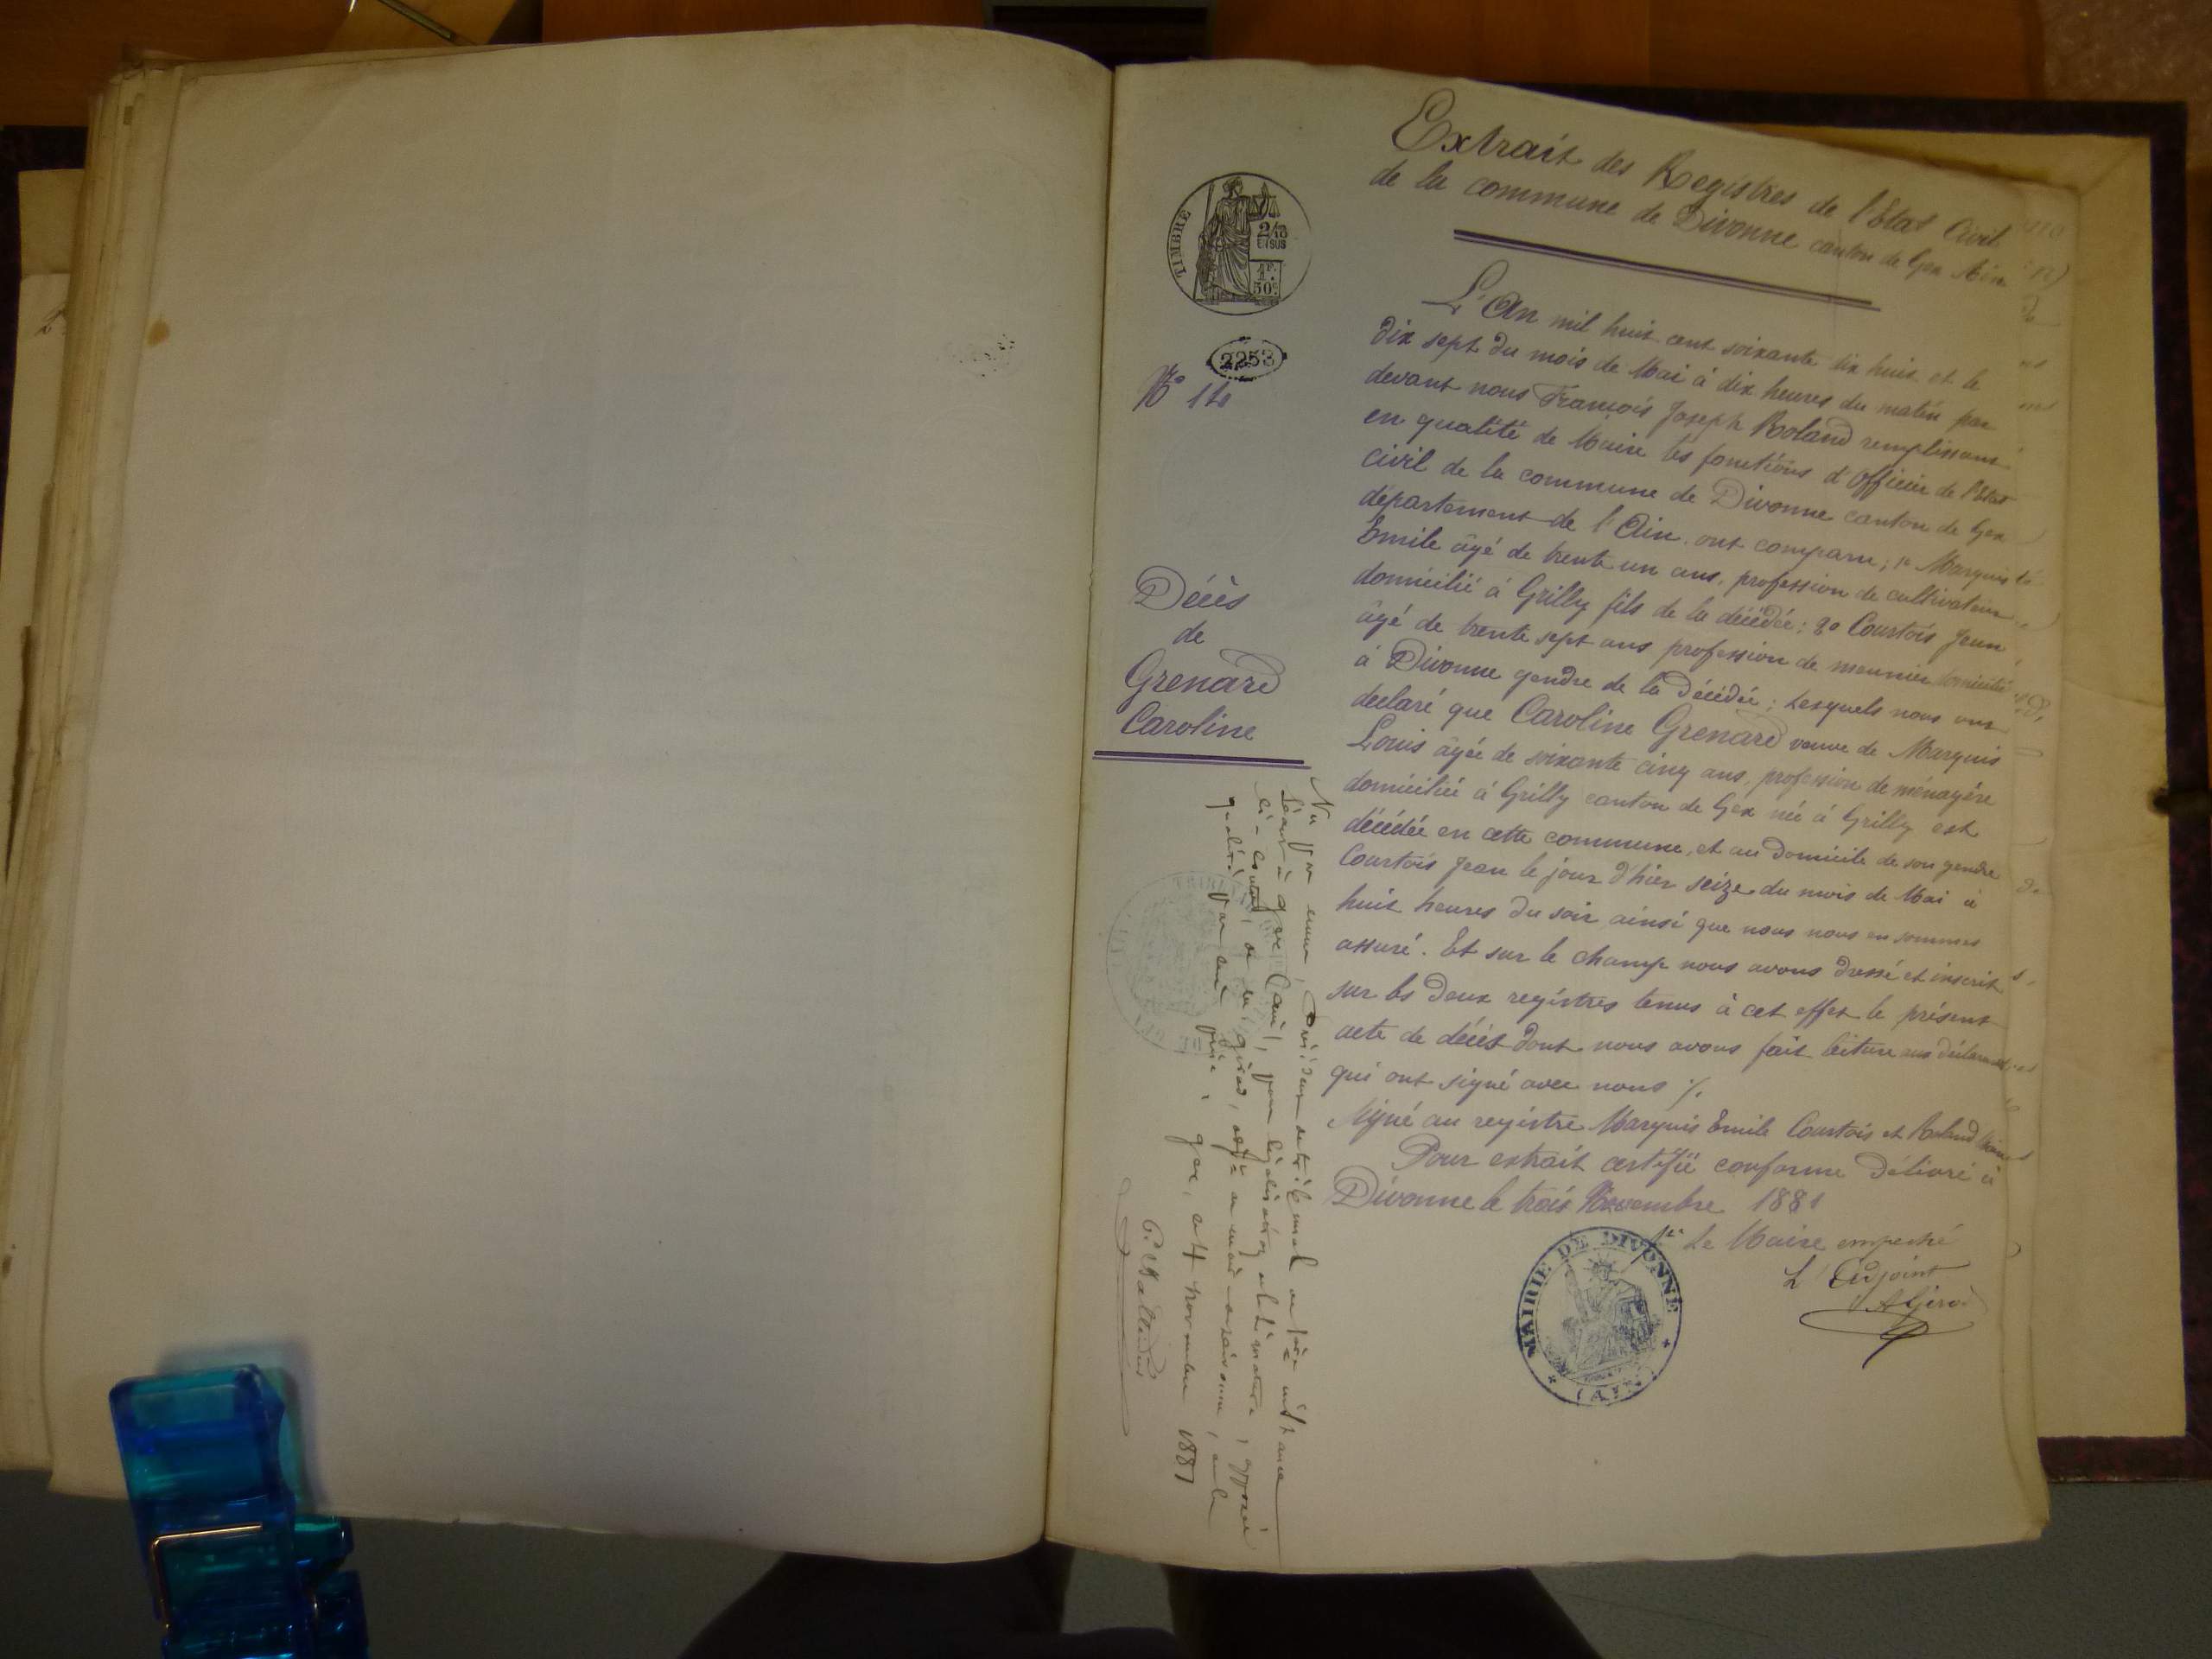 Extrait des Registres de l'Etat Civil
de la commune de Divonne canton de Gex Ain
TIMBRE
2/10
EN SUS
1F.
50c.
2253
No
Décès
de
Grenard
Caroline
L'An mil huit cent soixante dix huit et le
dix sept du mois de Mai à dix heures du matin par
devant nous François Joseph Roland remplissant
en qualité de Maire les fonctions d'Officier de l'Etat
civil de la commune de Divonne canton de Gex
département de l'Ain. ont comparu; 1o Marquis
Emile âgé de trente un ans, profession de cultivateur
domicilié à Grilly fils de la décédée; 2o Courtois Jean
âgé de trente sept ans profession de meunier domicilié
à Divonne gendre de la décédée; Lesquels nous ont
declaré que Caroline Grenard veuve de Marquis
Louis âgée de soixante cinq ans, profession de ménagère
domiciliée à Grilly canton de Gex née à Grilly est
décédée en cette commune, et au domicile de son gendre
Courtois Jean le jour d'hier seize du mois de Mai à
huit heures du soir ainsi que nous nous en sommes
assuré. Et sur le champ nous avons dressé et inscrit
sur les deux registres tenus à cet effet le présent
acte de décès dont nous avons fait lecture aux déclarants
qui ont signé avec nous %.
Signé au registre Marquis Emile Courtois et Roland Maire
Pour extrait certifié conforme délivré à
Divonne le trois Novembre 1881
Pr Le Maire empeché
L'Adjoint
A Girod
MAIRIE DE DIVONNE
(AIN)
Vu par nous, Président du tribunal de 1ère instance
séant à Gex (Ain), pour légalisation de la signature, apposée
ci-contre, de M. Girod, adjoint au maire de Divonne, en la
qualité par lui prise, Gex, le 4 novembre 1881